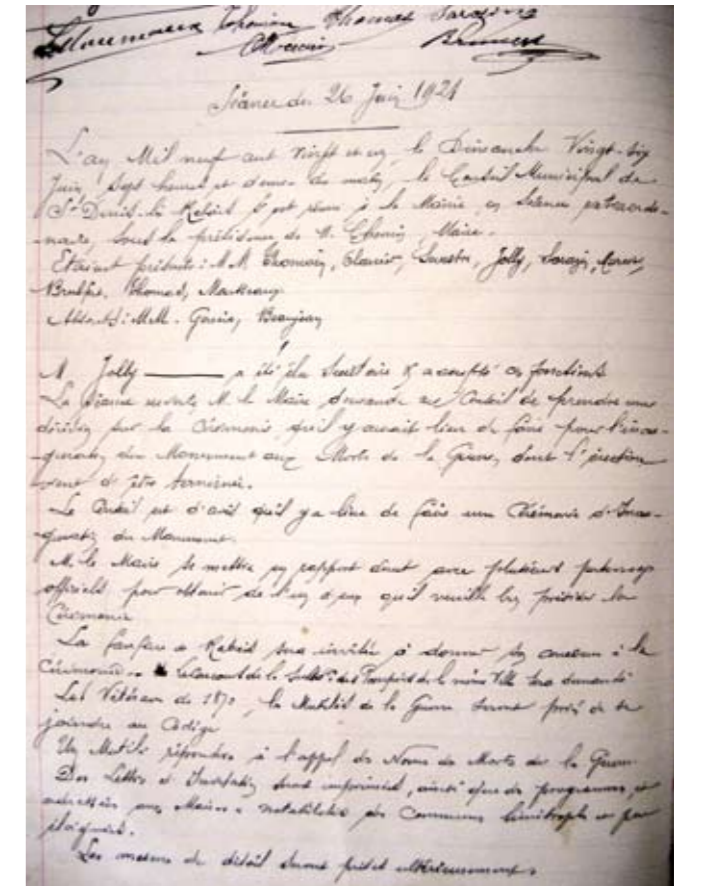 Thomas Sarazin
Séance du 26 Juin 1921
L'an Mil neuf cent vingt et un, le Dimanche Vingt-six
Juin, sept heures et demie du matin, le Conseil Municipal de
St Denis-les-Rebais s'est réuni à la Mairie en séance extraordi-
-naire, sous la présidence de M. Maire.
Etaient présents: M.M. Jolly, Sarazin,
Thomas,
Absents: M.M. Beaujean
M. Jolly — a été élu Secrétaire & a accepté ces fonctions
La séance ouverte M. le Maire demande au Conseil de prendre une
décision sur la Cérémonie qu'il y aurait lieu de faire pour l'inau-
-guration du Monument aux Morts de la Guerre, dont l'érection
vient d'être terminée.
Le Conseil est d'avis qu'il y a lieu de faire une Cérémonie d'Inau-
-guration du Monument.
M. le Maire se mettra en rapport avec plusieurs personnages
officiels pour obtenir de l'un d'eux qu'il veuille bien présider la
Cérémonie
La fanfare de Rebais sera invitée à donner son concours à la
Cérémonie. Le concours de la des Pompiers de la même Ville sera demandé
Les Vétérans de 1870, les Mutilés de la Guerre seront priés de se
joindre au Cortège
Un Mutilé répondra à l'appel des Noms des Morts de la Guerre
Des Lettres d'Invitation seront imprimées, ainsi que des programmes, et
adressées aux Maires & notabilités des Communes limitrophes et peu
éloignées.
Les mesures de détail seront prises ultérieurement.